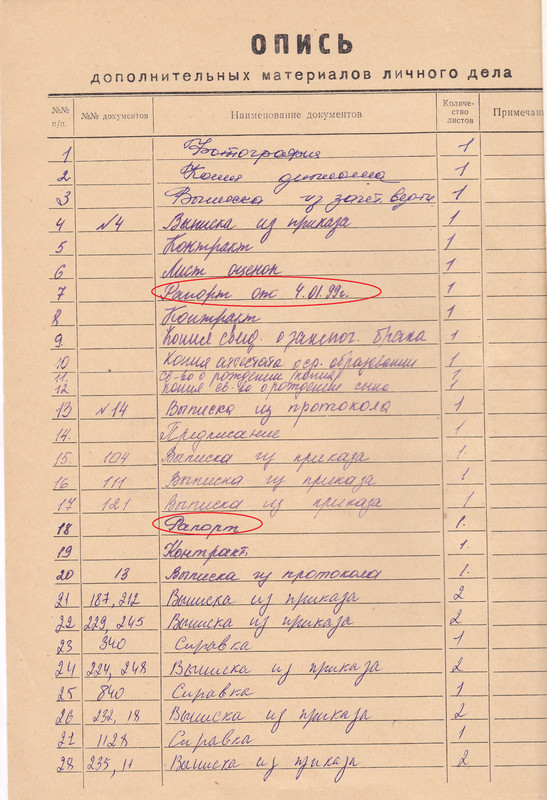 ОПИСЬ
дополнительных материалов личного дела
№№ п/п. №№ документов Наименование документов Количество листов Примечан
1 Фотография 1
2 Копия диплома 1
3 Выписка из зачет. ведом 1
4 №4 Выписка из приказа 1
5 Контракт 1
6 Лист оценок 1
7 Рапорт от 4.01.99г. 1
8 Контракт 1
9. Копия свид. о брака 1
10 Копия аттестата о ср. образовании 1
11. Св-во о рождении (копия) 1
12 Копия св-во о рождении сына 1
13 №14 Выписка из протокола 1
14. Предписание 1
15. 104 Выписка из приказа 1
16 111 Выписка из приказа 1
17 121 Выписка из приказа 1
18 Рапорт 1.
19 Контракт 1.
20 13 Выписка из протокола 1.
21 187, 212 Выписка из приказа 2
22 229, 245 Выписка из приказа 2
23 340 Справка 1
24 224, 248 Выписка из приказа 2
25 840 Справка 1
26 232, 18 Выписка из приказа 2
27 1128 Справка 1
28 235, 11 Выписка из приказа 2